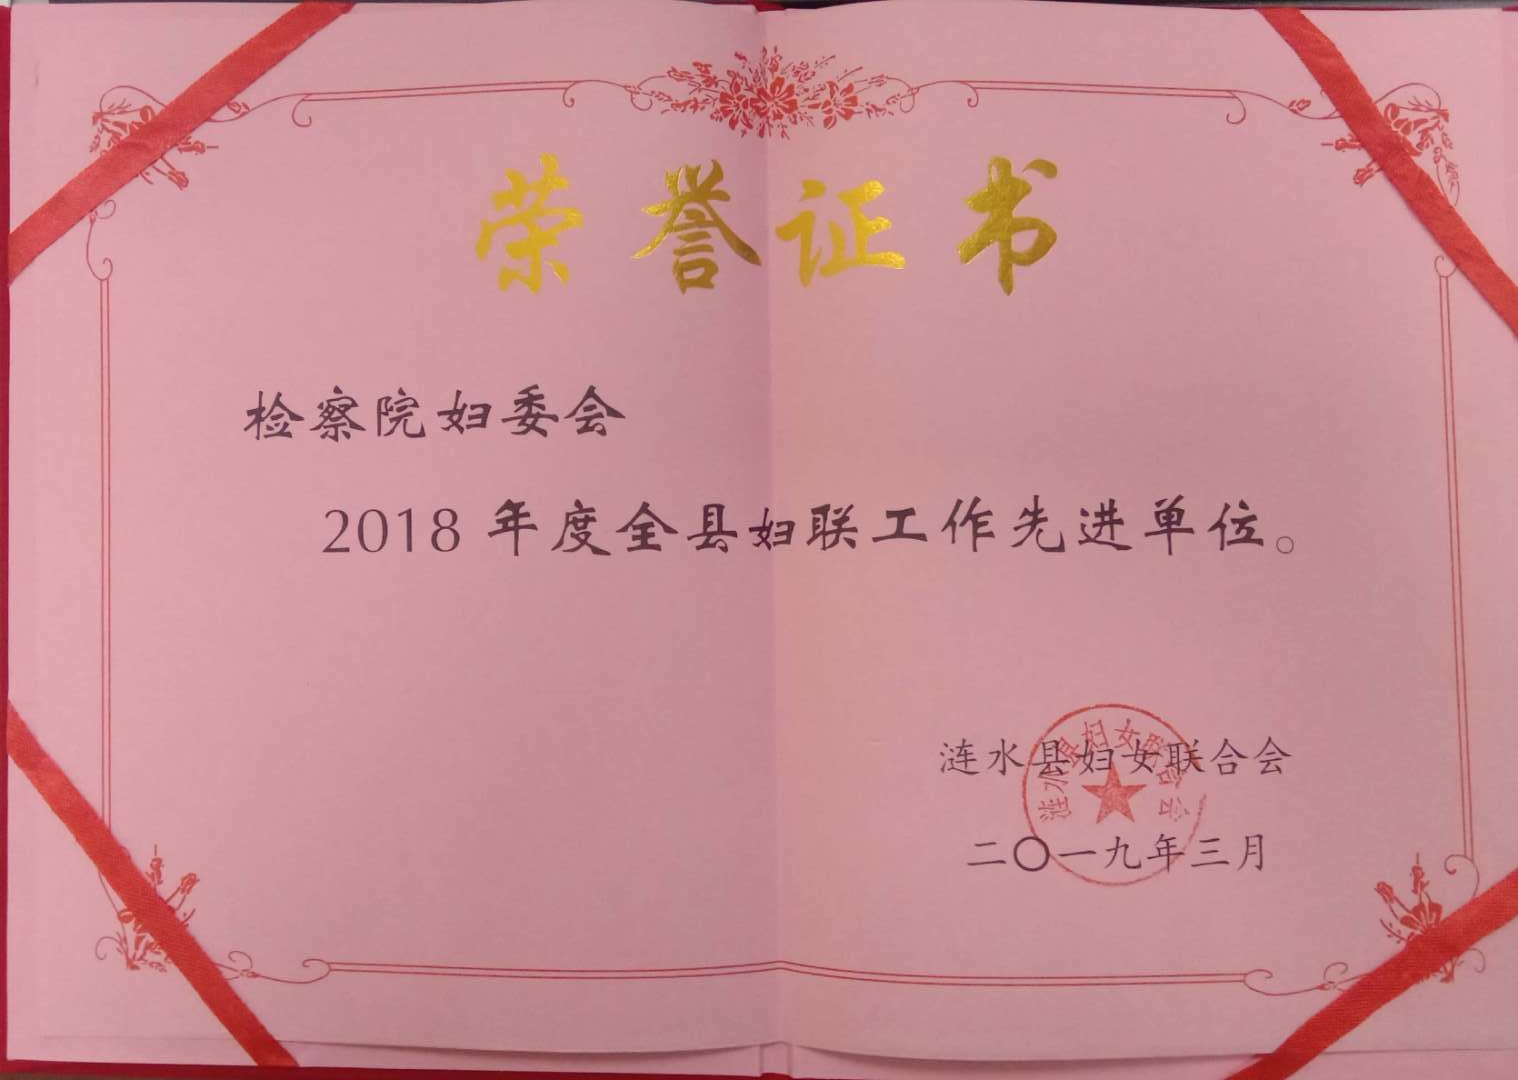 荣誉证书
检察院妇委会
2018年度全县妇联工作先进单位。
涟水县妇女联合会
二〇一九年三月
涟水县妇女联合会